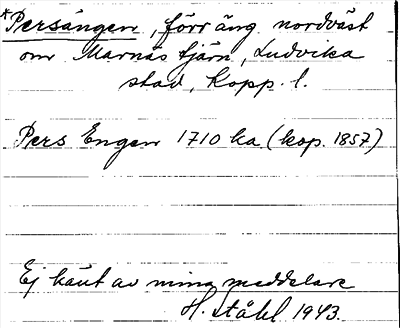 *Persängen, förr äng nordväst
om Marnäs tjärn, Ludvika
stad, Kopp. l.
Pers Engen 1710 ka (kop. 1857)
Ej känt av mina meddelare
H. Ståhl 1943.